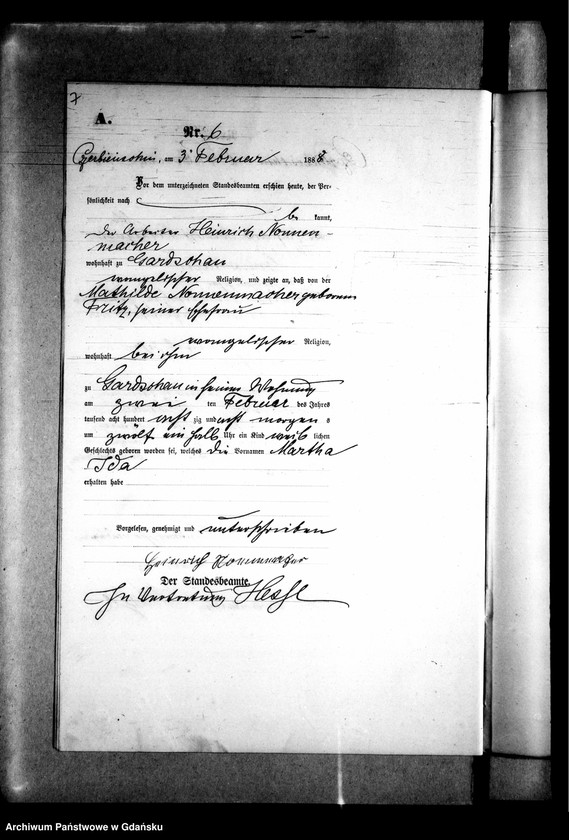 7
A.
Nr. 6
Czerbienschin, am 3 Februar 1888
Vor dem unterzeichneten Standesbeamten erschien heute, der Per-
sönlichkeit nach
be kannt,
der Arbeiter Heinrich Nonnen-
macher
wohnhaft zu Gardschau
evangelischer Religion, und zeigte an, daß von der
Mathilde Nonnenmacher geborenen
Fritz, seiner Ehefrau
evangelischer Religion,
wohnhaft bei ihm
zu Gardschau in seiner Wohnung
am zwei ten Februar des Jahres
tausend acht hundert acht zig und acht morgens
um zwölf ein halb Uhr ein Kind weib lichen
Geschlechts geboren worden sei, welches die Vornamen Martha
Ida
erhalten habe
Vorgelesen, genehmigt und unterschrieben
Heinrich Nonnenmacher
Der Standesbeamte.
In Vertretung
Archiwum Państwowe w Gdańsku